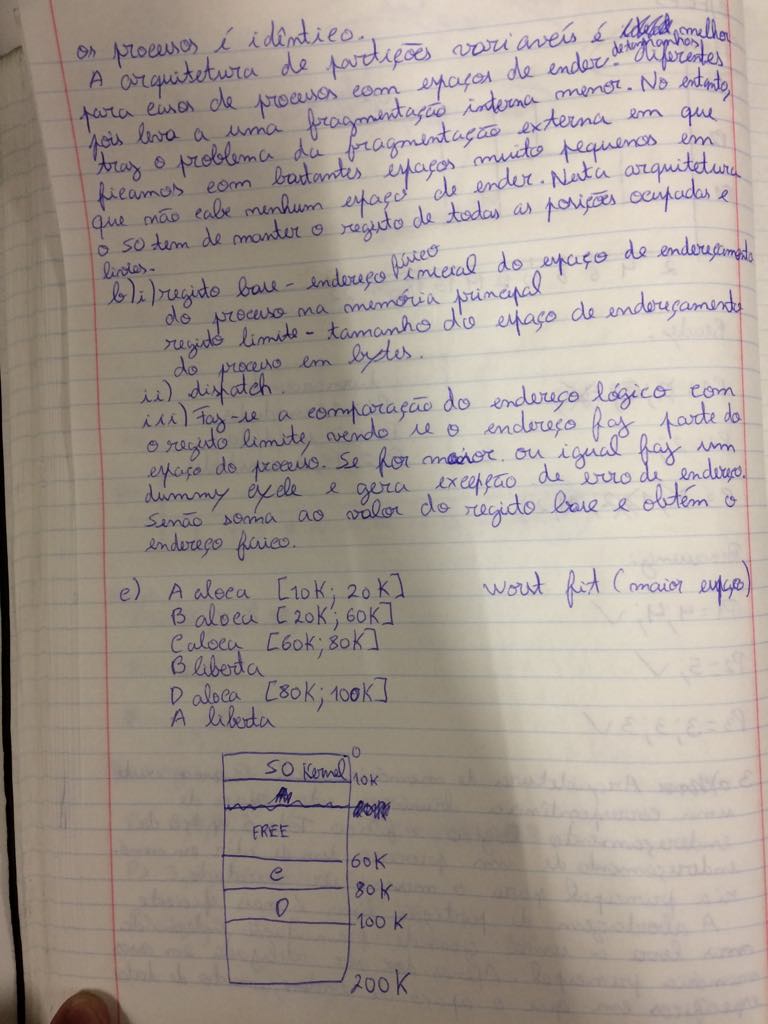 os processos é idêntico.
A arquitetura de partições variavéis é melhor
para casos de processos com espaços de ender. de tamanhos diferentes
pois leva a uma fragmentação interna menor. No entanto,
traz o problema da fragmentação externa em que
ficamos com bastantes espaços muito pequenos em
que não cabe nenhum espaço de ender. Nesta arquitetura
o SO tem de manter o registo de todas as posições ocupadas e
livres.
b) i) registo base - endereço físico inicial do espaço de endereçamento
do processo na memória principal
registo limite - tamanho do espaço de endereçamento
do processo em bytes.
ii) dispatch.
iii) Faz-se a comparação do endereço lógico com
o registo limite, vendo se o endereço faz parte do
espaço do processo. Se for maior ou igual faz um
dummy cycle e gera excepção de erro de endereço.
Senão soma ao valor do registo base e obtém o
endereço físico.
c) A aloca [10K; 20K] Worst fit (maior espaço)
B aloca [20K; 60K]
C aloca [60K; 80K]
B liberta
D aloca [80K; 100K]
A liberta
0
SO Kernel
10K
FREE
60K
C
80K
D
100K
200K